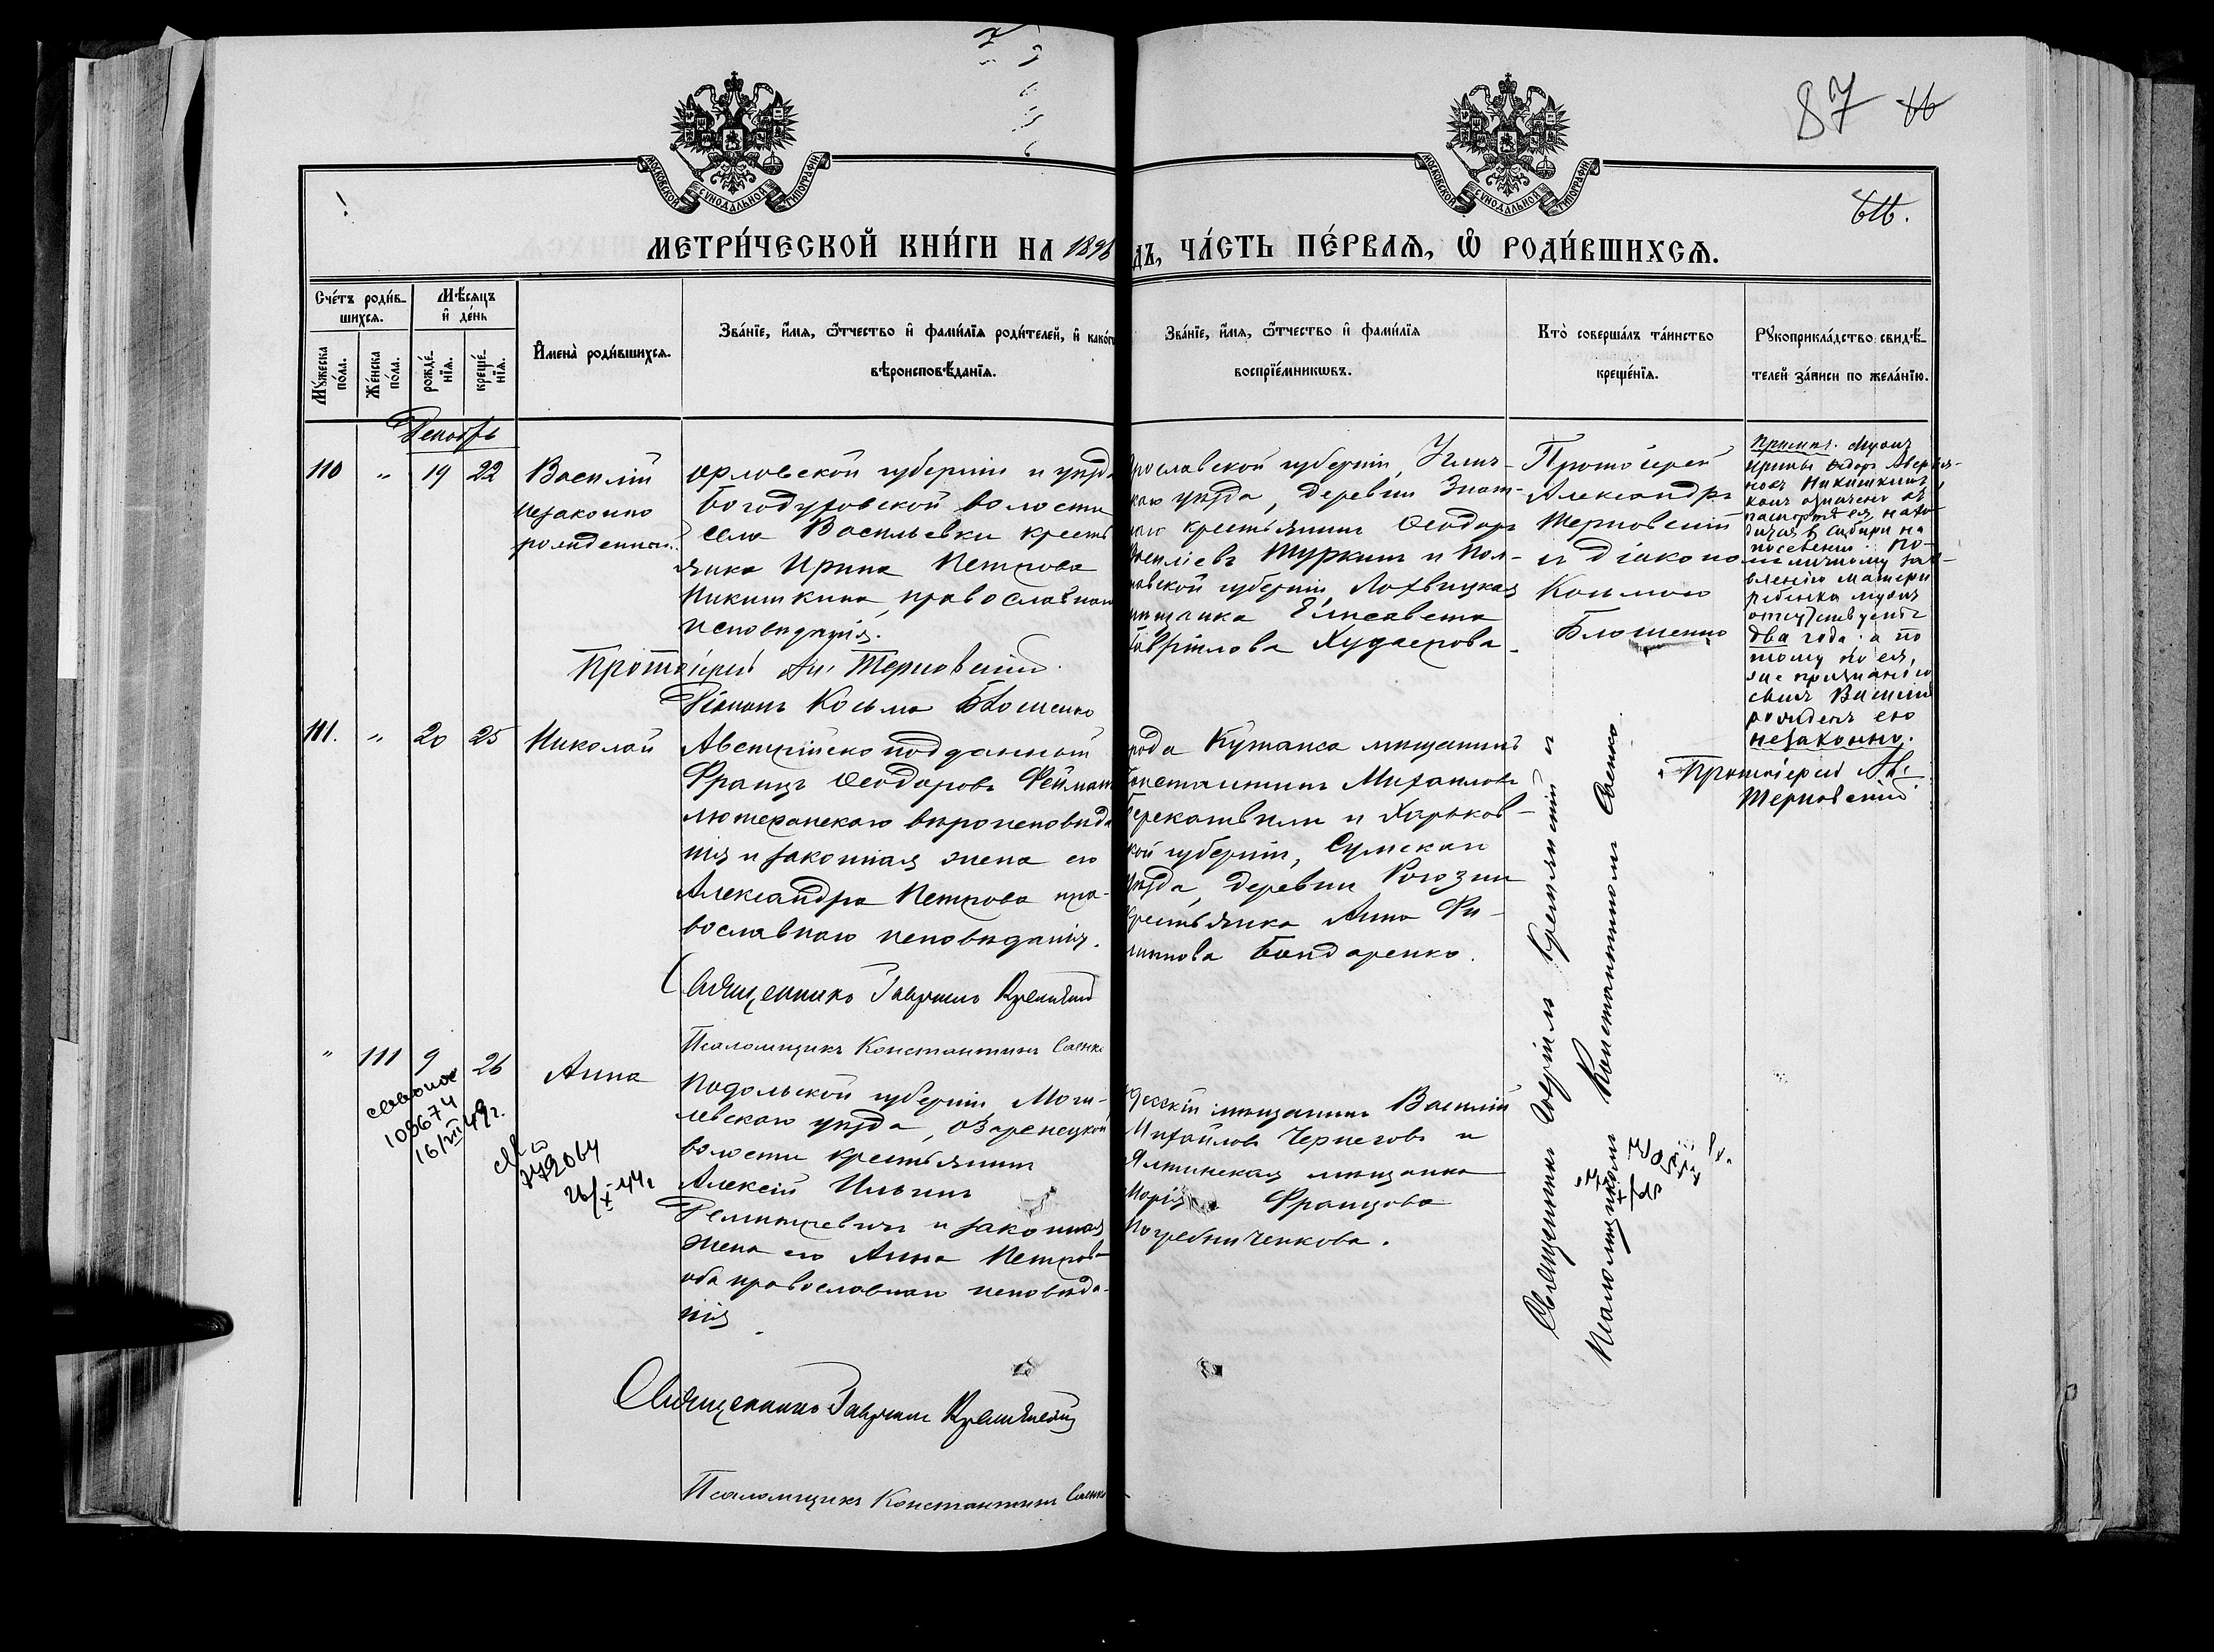 87
МОСКОВСКОЙ СѴНОДАЛЬНОЙ ТИПОГРАФІИ
МОСКОВСКОЙ СѴНОДАЛЬНОЙ ТИПОГРАФІИ
МЕТРИ́ЧЕСКОЙ КНИ́ГИ НА 1896
дъ, ЧА́СТЬ ПЕ́РВАѦ, Ѡ РОДИ́ВШИХСѦ.
Сче́тъ роди́в-
шихсѧ.
Мꙋжеска по́ла.
Же́нска по́ла.
Мѣ́сѧцъ
и҆ де́нь
рожде́-
нїѧ.
креще́-
нїѧ.
И҆мена̀ роди́вшихсѧ.
Зва́нїе, и҆́мѧ, ѻ҆́тчество и҆ фами́лїѧ роди́телей, и҆ како́гѡ
вѣроисповѣ́данїѧ.
Зва́нїе, и҆́мѧ, ѻ҆́тчество и҆ фами́лїѧ
воспрїе́мникѡвъ.
Кто̀ соверша́лъ та́инство
креще́нїѧ.
Рꙋкоприкла́дство свидѣ́-
телей за́писи по жела́нїю.
Декабрь
110 " 19 22
Василій
незаконно
рожденный
Орловской губерніи и уѣзда
Богодуховской волости
села Васильевки кресть
янка Ирина Петрова
Никишкина, православнаго
исповѣданія.
Протоіерей Ал. Терновскій.
Діаконъ Косьма Блошенко
Ярославской губерніи, Углич-
скаго уѣзда, деревни
крестьянинъ Ѳеодоръ
Василіевъ Туркинъ и Пол-
тавской губерніи, Лохвицкая
мѣщанка Елисавета
Гавріилова Худаерова.
Протоіерей
Александръ
Терновскій
и діаконъ
Косьма
Блошенко
Примѣч. Мужъ
Ирины Ѳедоръ Аверья-
новъ Никишкинъ,
какъ означено въ
паспортѣ ея, нахо-
дится въ Сибири на
поселеніи. По
личному зая-
вленію матери
ребенка мужъ
отсутствуетъ
два года, а по
тому по ея
же признанію
сынъ Василій
рожденъ ею
незаконно.
Протоіерей Ал.
Терновскій
111. " 20 25
Николай
Австрійско подданный
Францъ Ѳеодоровъ Фейман
лютеранскаго вѣроисповѣда
нія и законная жена его
Александра Петрова пра-
вославнаго исповѣданія.
Священникъ Гавріилъ Кремянскій
Псаломщикъ Константинъ Саенко
рода Кутаиса мѣщанинъ
Константинъ Михаиловъ
и Харьков-
ской губерніи, Сумскаго
уѣзда, деревни
крестьянка Анна Фи-
липпова Бондаренко.
Священникъ Гавріилъ Кремянскій и
Псаломщикъ Константинъ Саенко.
" 111 9 26
Анна
108674
16/VII 49г.
279064
26/X-44г
Подольской губерніи Моги-
левскаго уѣзда, Озаренецкой
волости крестьянинъ
Алексій Ильинъ
и законная
жена его Анна Петрова
оба православнаго исповѣда-
нія.
Священникъ Гавріилъ Кремянскій
Псаломщикъ Константинъ Саенко
Одесскій мѣщанинъ Василій
Михайловъ Черпеговъ и
Ялтинская мѣщанка
Марія Францова
Погребниченкова.